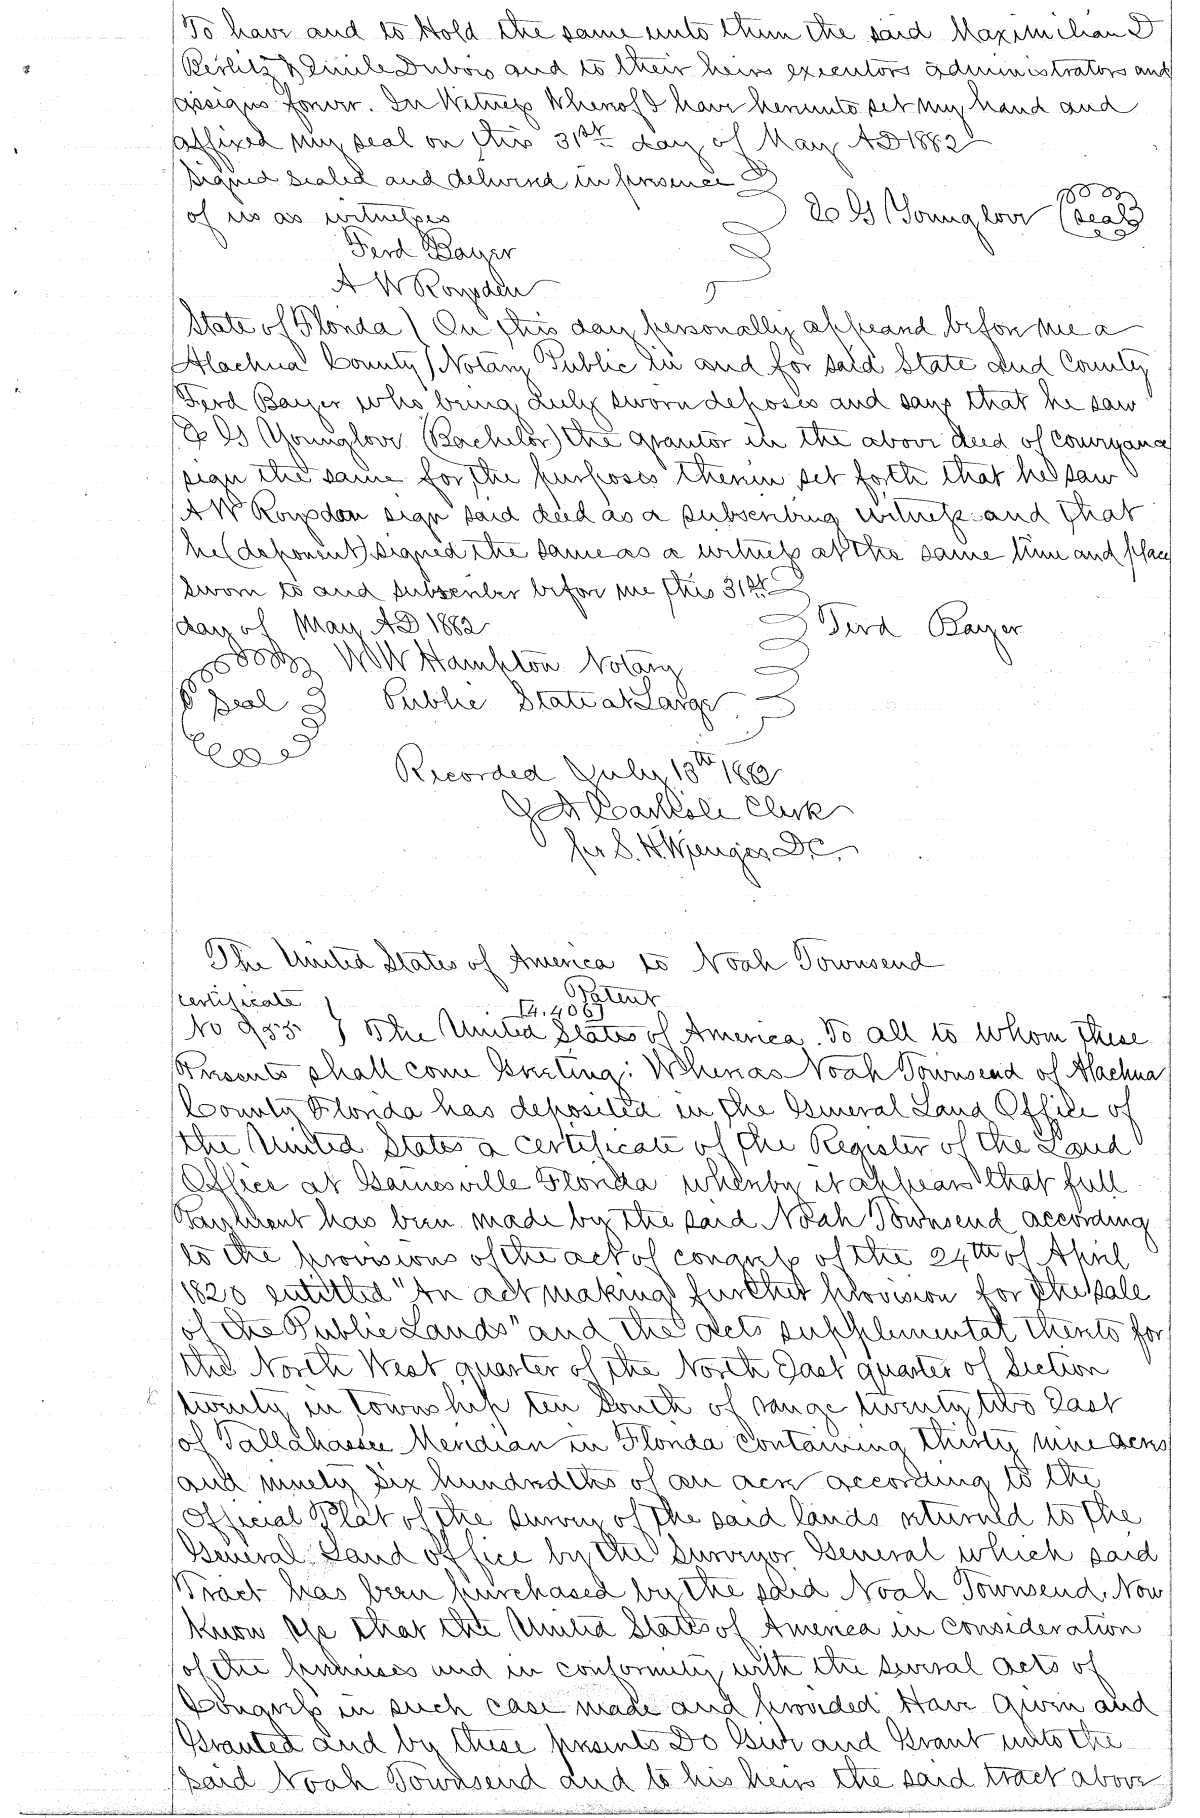 To have and to Hold the same unto them the said Maximilian D
Berlitz & Emile Dubois and to their heirs executors administrators and
assigns forever. In Witness Whereof I have hereunto set my hand and
affixed my seal on this 31st day of May AD 1882
Signed Sealed and delivered in presence
of us as witnesses
E G Younglove (Seal)
Ferd Bayer
A W Roysden
State of Florida ) On this day personally appeared before me a
Alachua County ) Notary Public in and for said State and County
Ferd Bayer who being duly sworn deposes and says that he saw
E G Younglove (Bachelor) the grantor in the above deed of conveyance
sign the same for the purposes therein set forth that he saw
A W Roysdon sign said deed as a subscribing witness and that
he (deponent) signed the same as a witness at the same time and place
Sworn to and subscriber before me this 31st
day of May AD 1882
Ferd Bayer
W W Hampton Notary
Seal Public State at Large
Recorded July 13th 1882
J A Carlisle Clerk
per S. H. Wienges D.C.
The United States of America to Noah Townsend
Patent
Certificate
[4.406]
No 955 } The United States of America. To all to whom these
Presents shall come Greeting: Whereas Noah Townsend of Alachua
County Florida has deposited in the General Land Office of
the United States a certificate of the Register of the Land
Office at Gainesville Florida whereby it appears that full
Payment has been made by the said Noah Townsend according
to the provisions of the act of congress of the 24th of April
1820 entitled "An act making further provision for the sale
of the Public Lands" and the acts supplemental thereto for
the North West quarter of the North East quarter of Section
twenty in township ten South of range twenty two East
of Tallahassee Meridian in Florida containing thirty nine acres
and ninety six hundredths of an acre according to the
Official Plat of the survey of the said lands returned to the
General Land office by the Surveyor General which said
Tract has been purchased by the said Noah Townsend. Now
Know Ye that the United States of America in consideration
of the premises and in conformity with the several acts of
Congress in such case made and provided Have Given and
Granted and by these presents Do Give and Grant unto the
said Noah Townsend and to his heirs the said tract above